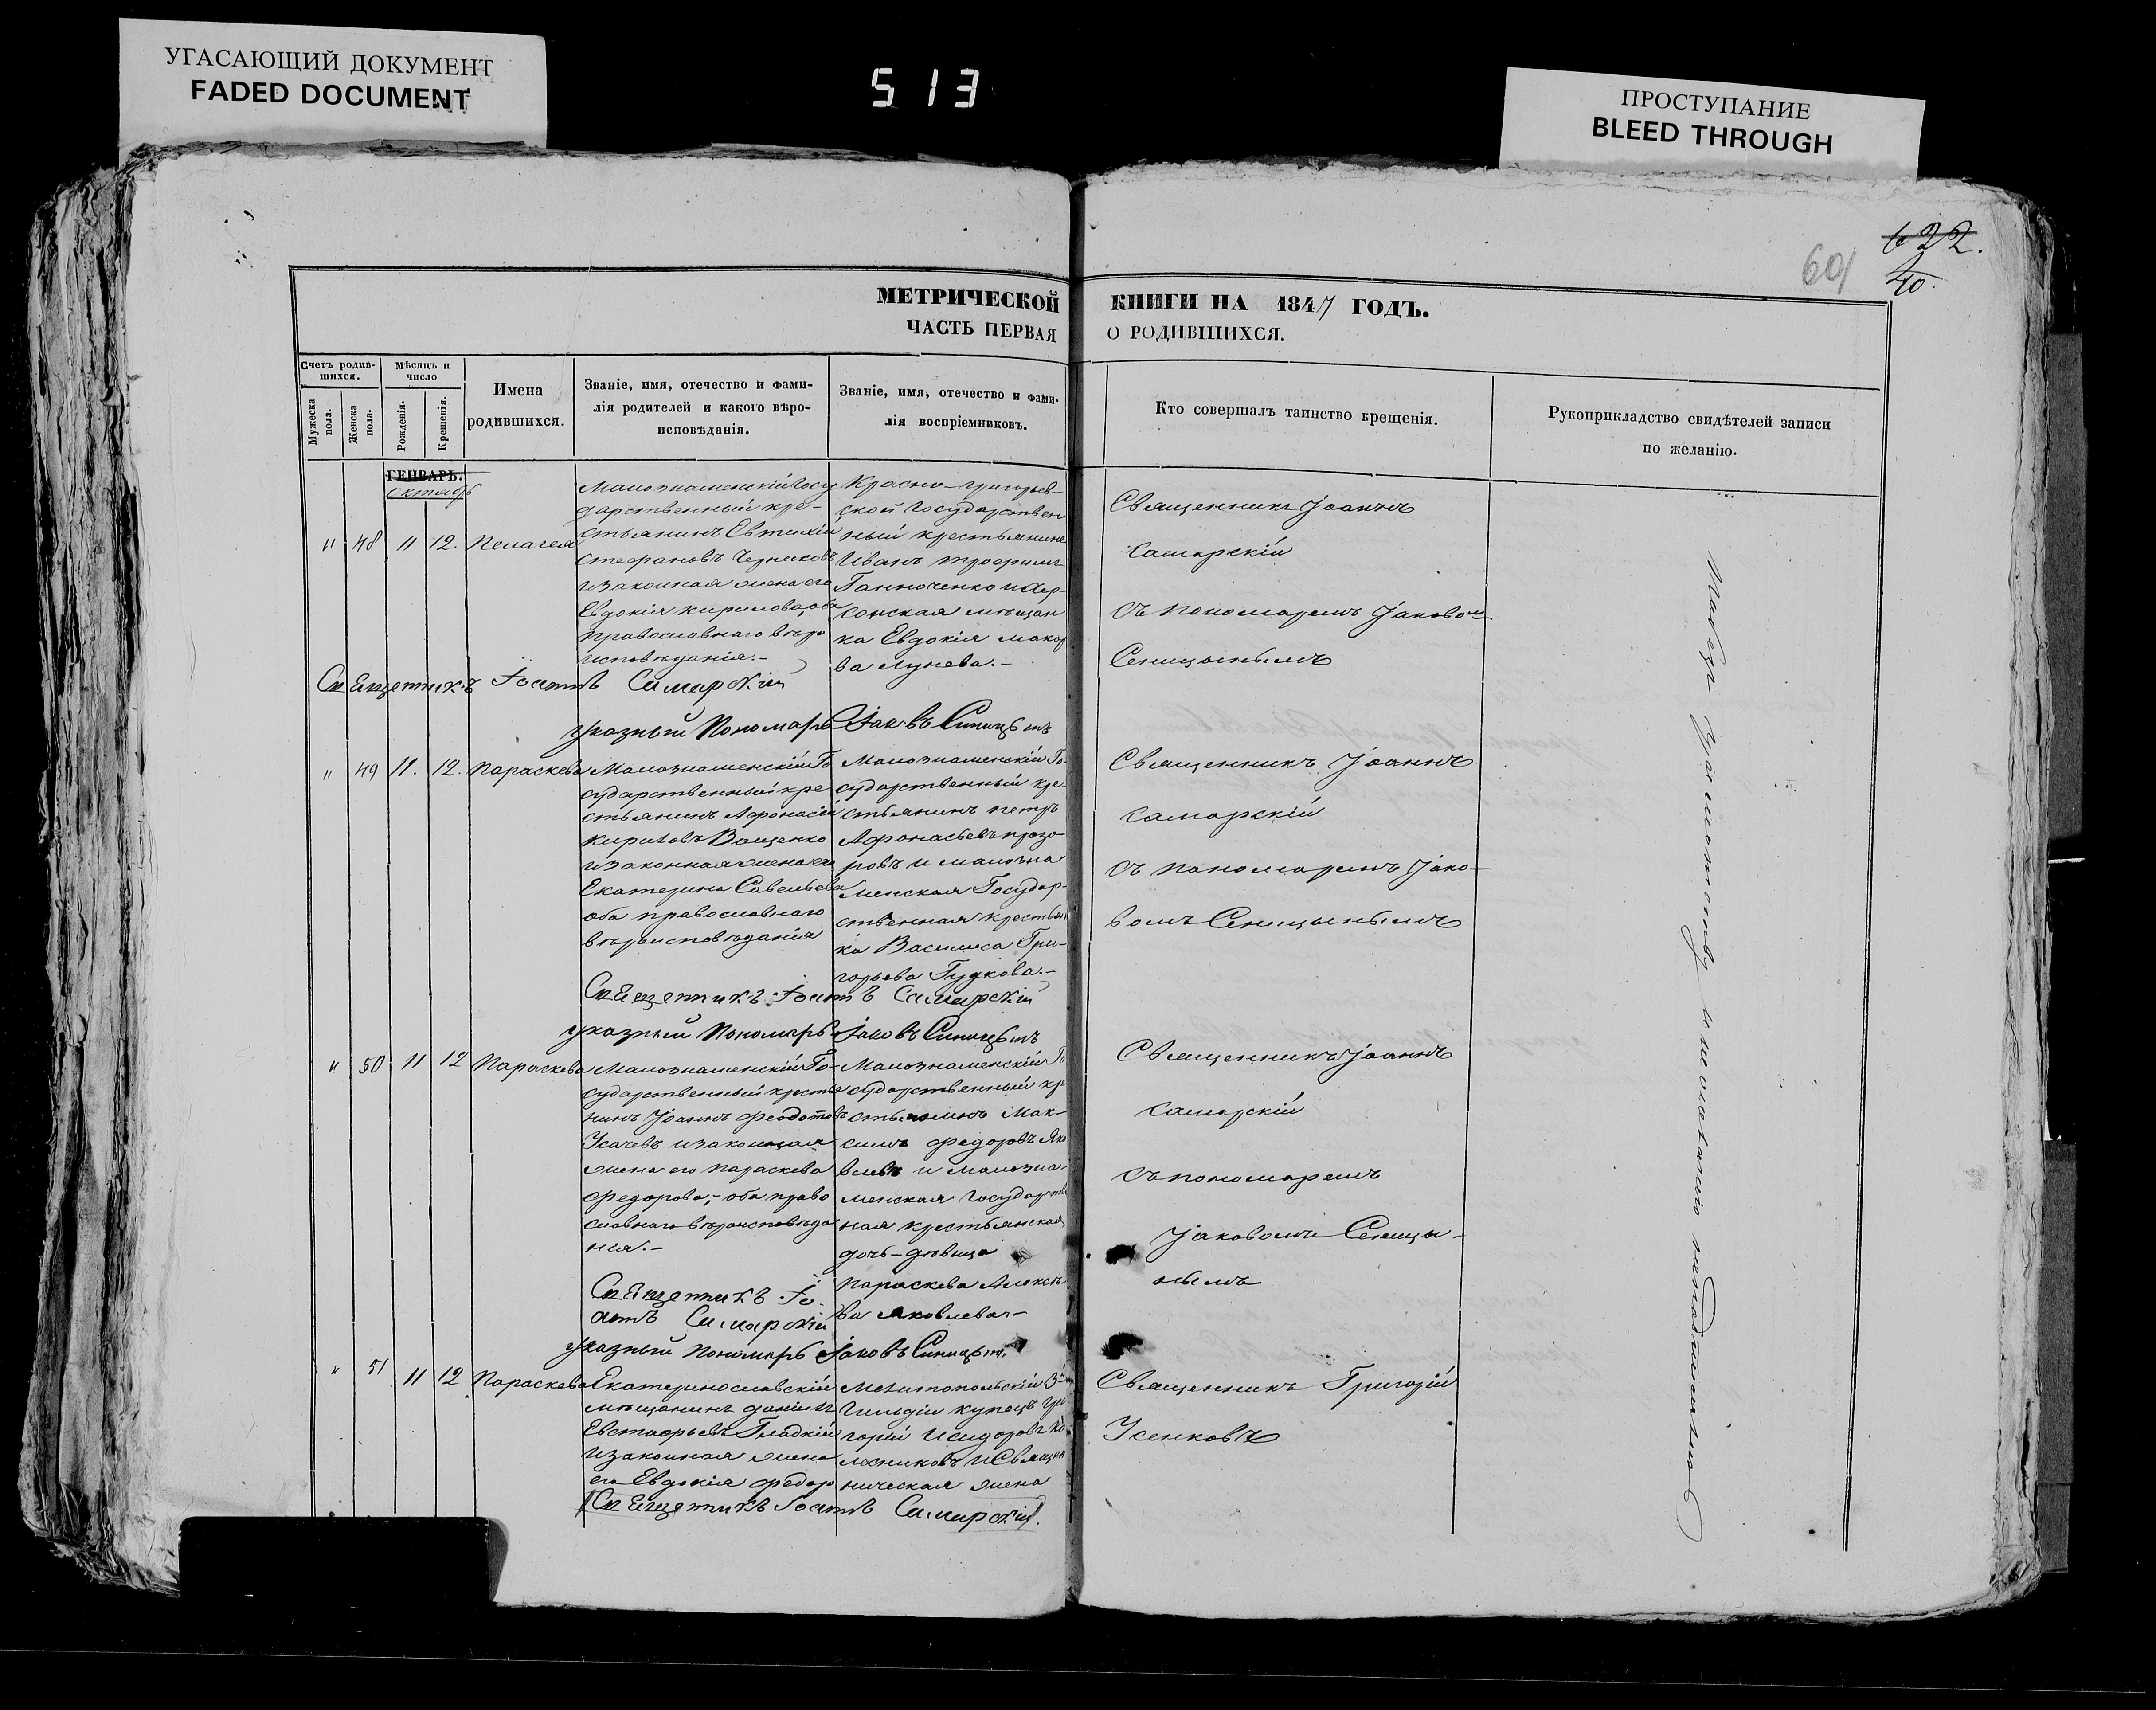 УГАСАЮЩИЙ ДОКУМЕНТ
FADED DOCUMENT
513
ПРОСТУПАНИЕ
BLEED THROUGH
622.
601
40.
МЕТРИЧЕСКОЙ КНИГИ НА 1847 ГОДЪ.
ЧАСТЬ ПЕРВАЯ О РОДИВШИХСЯ.
Счетъ родив-
шихся.
Мужеска
пола.
Женска
пола.
Мѣсяцъ и
число
Рожденія.
Крещенія.
Имена
родившихся.
Званіе, имя, отечество и фами-
лія родителей и какого вѣро-
исповѣданія.
Званіе, имя, отечество и фами-
лія воспріемниковъ.
Кто совершалъ таинство крещенія.
Рукоприкладство свидѣтелей записи
по желанію.
ГЕНВАРЬ.
октябрь
" 48 11 12. Пелагея
Малознаменскій Госу
дарственный кре-
стьянинъ Евтихій
Стефановъ
и законная жена его
Евдокія Кирилова, оба
православнаго вѣро
исповѣданія.-
Красно-григорьев-
ской Государствен
ный крестьянинъ
Иванъ Трофимъ
и Хер-
сонская мѣщан
ка Евдокія Макар
ва Лунева.-
Священникъ Іоаннъ
Самарскій
съ пономаремъ Іаковом
Сеницынымъ
Священникъ Іоаннъ Самарскій
указный Пономарь Іаковъ Синицынъ
" 49 11. 12. Параскева
Малознаменскій Го
сударственный кре
стьянинъ Афонасій
Кириловъ Ващенко
и законная жена его
Екатерина Савельева
оба православнаго
вѣроисповѣданія
Малознаменскій Го-
сударственный кре-
стьянинъ Петръ
Афонасьевъ прозо-
ровъ и малозна
менская Государ-
ственная крестьян
ка Василиса Гри-
горьева Гудкова.-
Священникъ Іоаннъ
Самарскій
съ пономаремъ Іако-
вомъ Сеницынымъ
Священникъ Іоаннъ Самарскій
указный Пономарь Іаковъ Синицынъ
" 50 11 12 Параскева
Малознаменскій Го-
сударственный крестья
нинъ Іоаннъ Феодотовъ
Усачевъ и законная
жена его Параскева
Федорова,- оба право
славнаго вѣроисповѣда
нія.-
Малознаменскій Го
сударственный кр
стьянинъ Мак-
симъ Федоровъ Яко
влевъ и малозна-
менская Государстве
ная крестьянская
дочь-дѣвица
Параскева Алексѣ
ва Яковлева-
Священникъ Іоаннъ
Самарскій
съ пономаремъ
Іаковомъ Сеницы-
нымъ
Священникъ Іо
аннъ Самарскій
указный Пономарь Іаковъ Синицынъ
" 51 11 12 Параскева
Екатеринославскій
мѣщанинъ Даніилъ
Евстафьевъ Гладкій
и законная жена
его Евдокія Федор
Мелитопольскій 3й
Гильдіи купецъ Гри
горій Исидоровъ Ко
лесниковъ и Священ
ническая жена
Священникъ Григорій
Усенковъ
Священникъ Іоаннъ Самарскій.